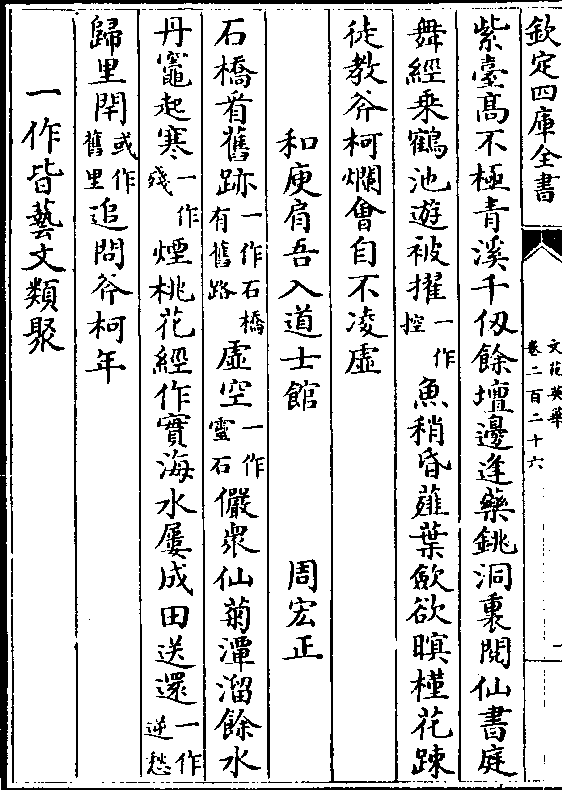 欽定四庫全書
文苑英華
卷二百二十六
紫臺高不極青溪千仭餘壇邊逢藥銚洞裏閱仙書庭
舞經乘鶴池遊被擢一作控魚稍昏蕹葉歛欲暝槿花踈
徒教斧柯爛會自不凌虚
和庾肩吾入道士館 周宏正
石橋看舊跡一作石橋有舊路虚空一作靈石儼衆仙菊潭溜餘水
丹竈起寒一作殘煙桃花經作實海水屢成田送還一作逆愁
歸里閈或作舊里追問斧柯年
一作皆藝文類聚